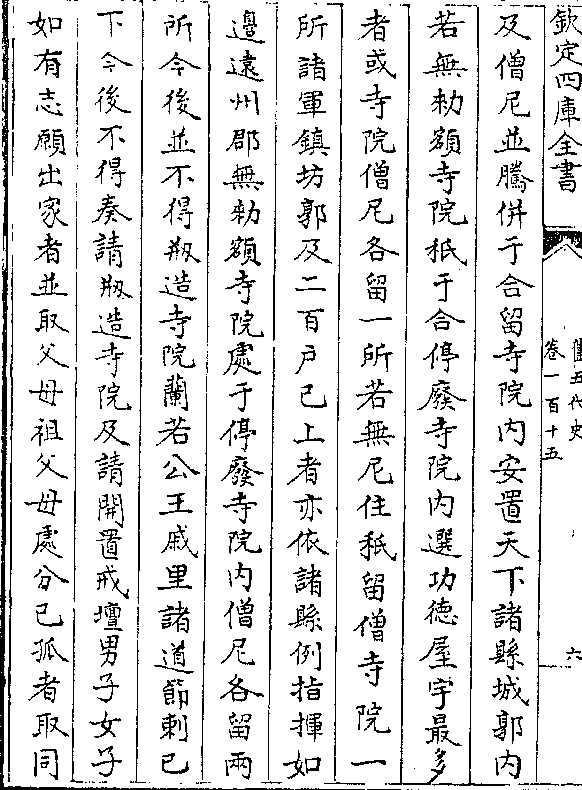 欽定四庫全書
舊五代史
卷一百十五
六
及僧尼並騰併于合留寺院内安置天下諸縣城郭内
若無勅額寺院秖于合停廢寺院内選功德屋宇最多
者或寺院僧尼各留一所若無尼住秖留僧寺院一
所諸軍鎮坊郭及二百户已上者亦依諸縣例指揮如
邊遠州郡無勅額寺院處于停廢寺院内僧尼各留兩
所今後並不得剏造寺院蘭若公王戚里諸道節刺已
下今後不得奏請剏造寺院及請開置戒壇男子女子
如有志願出家者並取父母祖父母處分已孤者取同